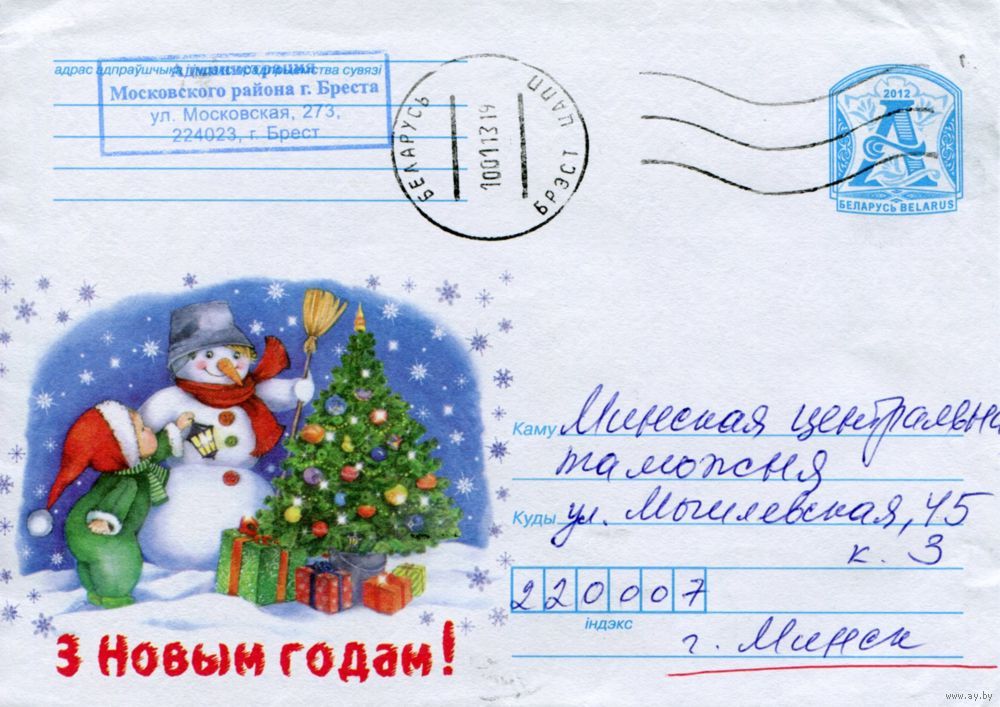 адрас адпраўшчыка і індэкс прадпрыемства сувязі
Администрация
Московского района г. Бреста
ул. Московская, 273,
224023, г. Брест
БЕЛАРУСЬ
100113 19
БРЭСТ ЦАПП
2012
А
БЕЛАРУСЬ BELARUS
Каму Минская центральна
таможня
Куды ул. Могилевская, 45
к. 3
220007
індэкс
г. Минск
З Новым годам!
www.ay.by